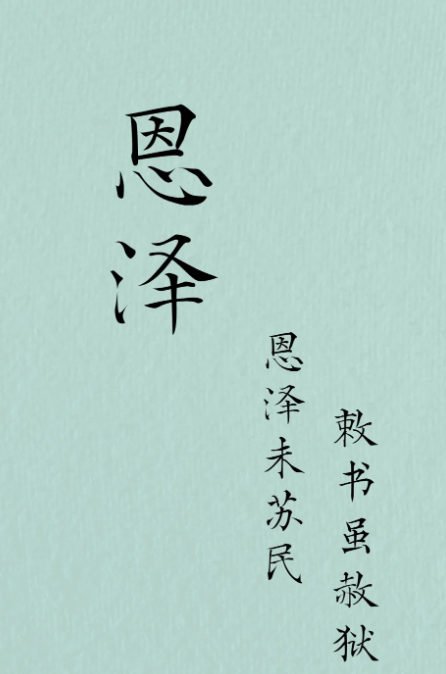 恩泽
敕书虽赦狱
恩泽未苏民